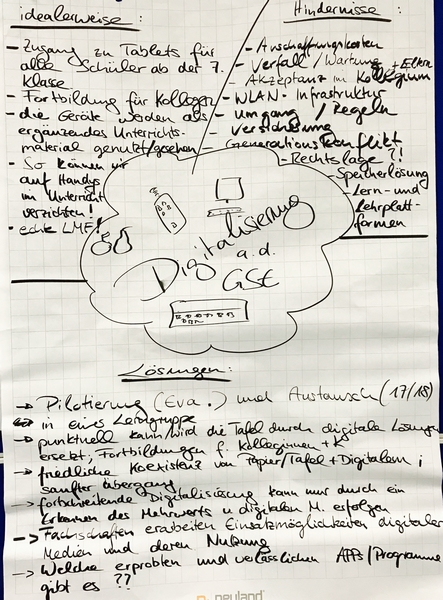 idealerweise:
- Zugang zu Tablets für
alle Schüler ab der 7.
Klasse
- Fortbildung für Kollegen
- die Geräte werden als
ergänzendes Unterrichts-
material genutzt/gesehen
- So können wir
auf Handys
im Unterricht
verzichten!
- echte LMF!
Hindernisse:
- Anschaffungskosten
- Verfall / Wartung
- Akzeptanz im Kollegium + Eltern
- WLAN-Infrastruktur
- Umgang / Regeln
- Versicherung
- Generationskonflikt
- Rechtslage?!
- Speicherlösung
- Lern- und
Lehrplatt-
formen
Digitalisierung
a.d.
GSE
Lösungen:
→ Pilotierung (Eva.) und Austausch (17/18)
in einer Lerngruppe
→ punktuell kann/wird die Tafel durch digitale Lösungen
ersetzt, Fortbildungen f. Kolleginnen + K
→ friedliche Koexistenz von Papier/Tafel + Digitalem;
sanfter Übergang
→ fortschreitende Digitalisierung kann nur durch ein
Erkennen des Mehrwerts v. digitalen M. erfolgen
→ Fachschaften erarbeiten Einsatzmöglichkeiten digitaler
Medien und deren Nutzung
→ Welche erprobten und verlässlichen APPs/Programme
gibt es ??
neuland